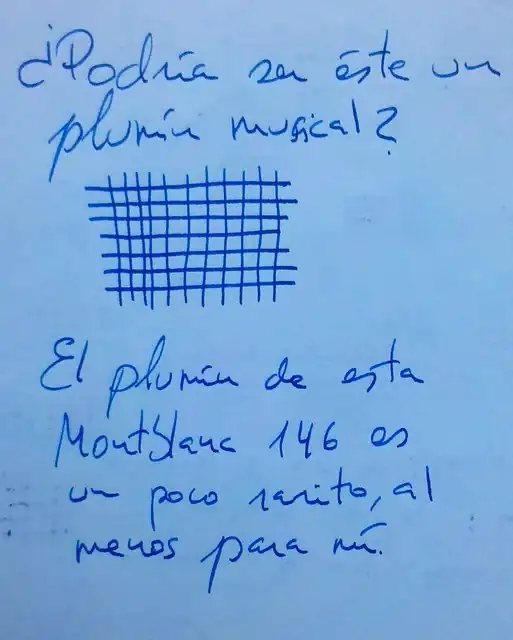 ¿Podría ser éste un
plumín musical?
El plumín de esta
Montblanc 146 es
un poco rarito, al
menos para mí.